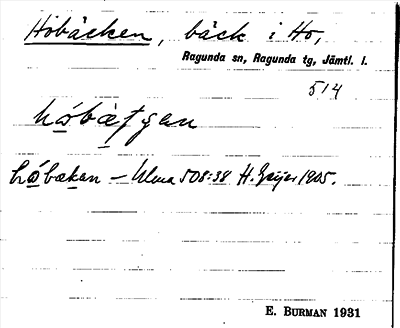 Hobäcken, bäck i Ho,
Ragunda sn, Ragunda tg, Jämtl. l.
514
hobäkan – Ulma 508:38 H. Geijer 1905.
E. BURMAN 1931